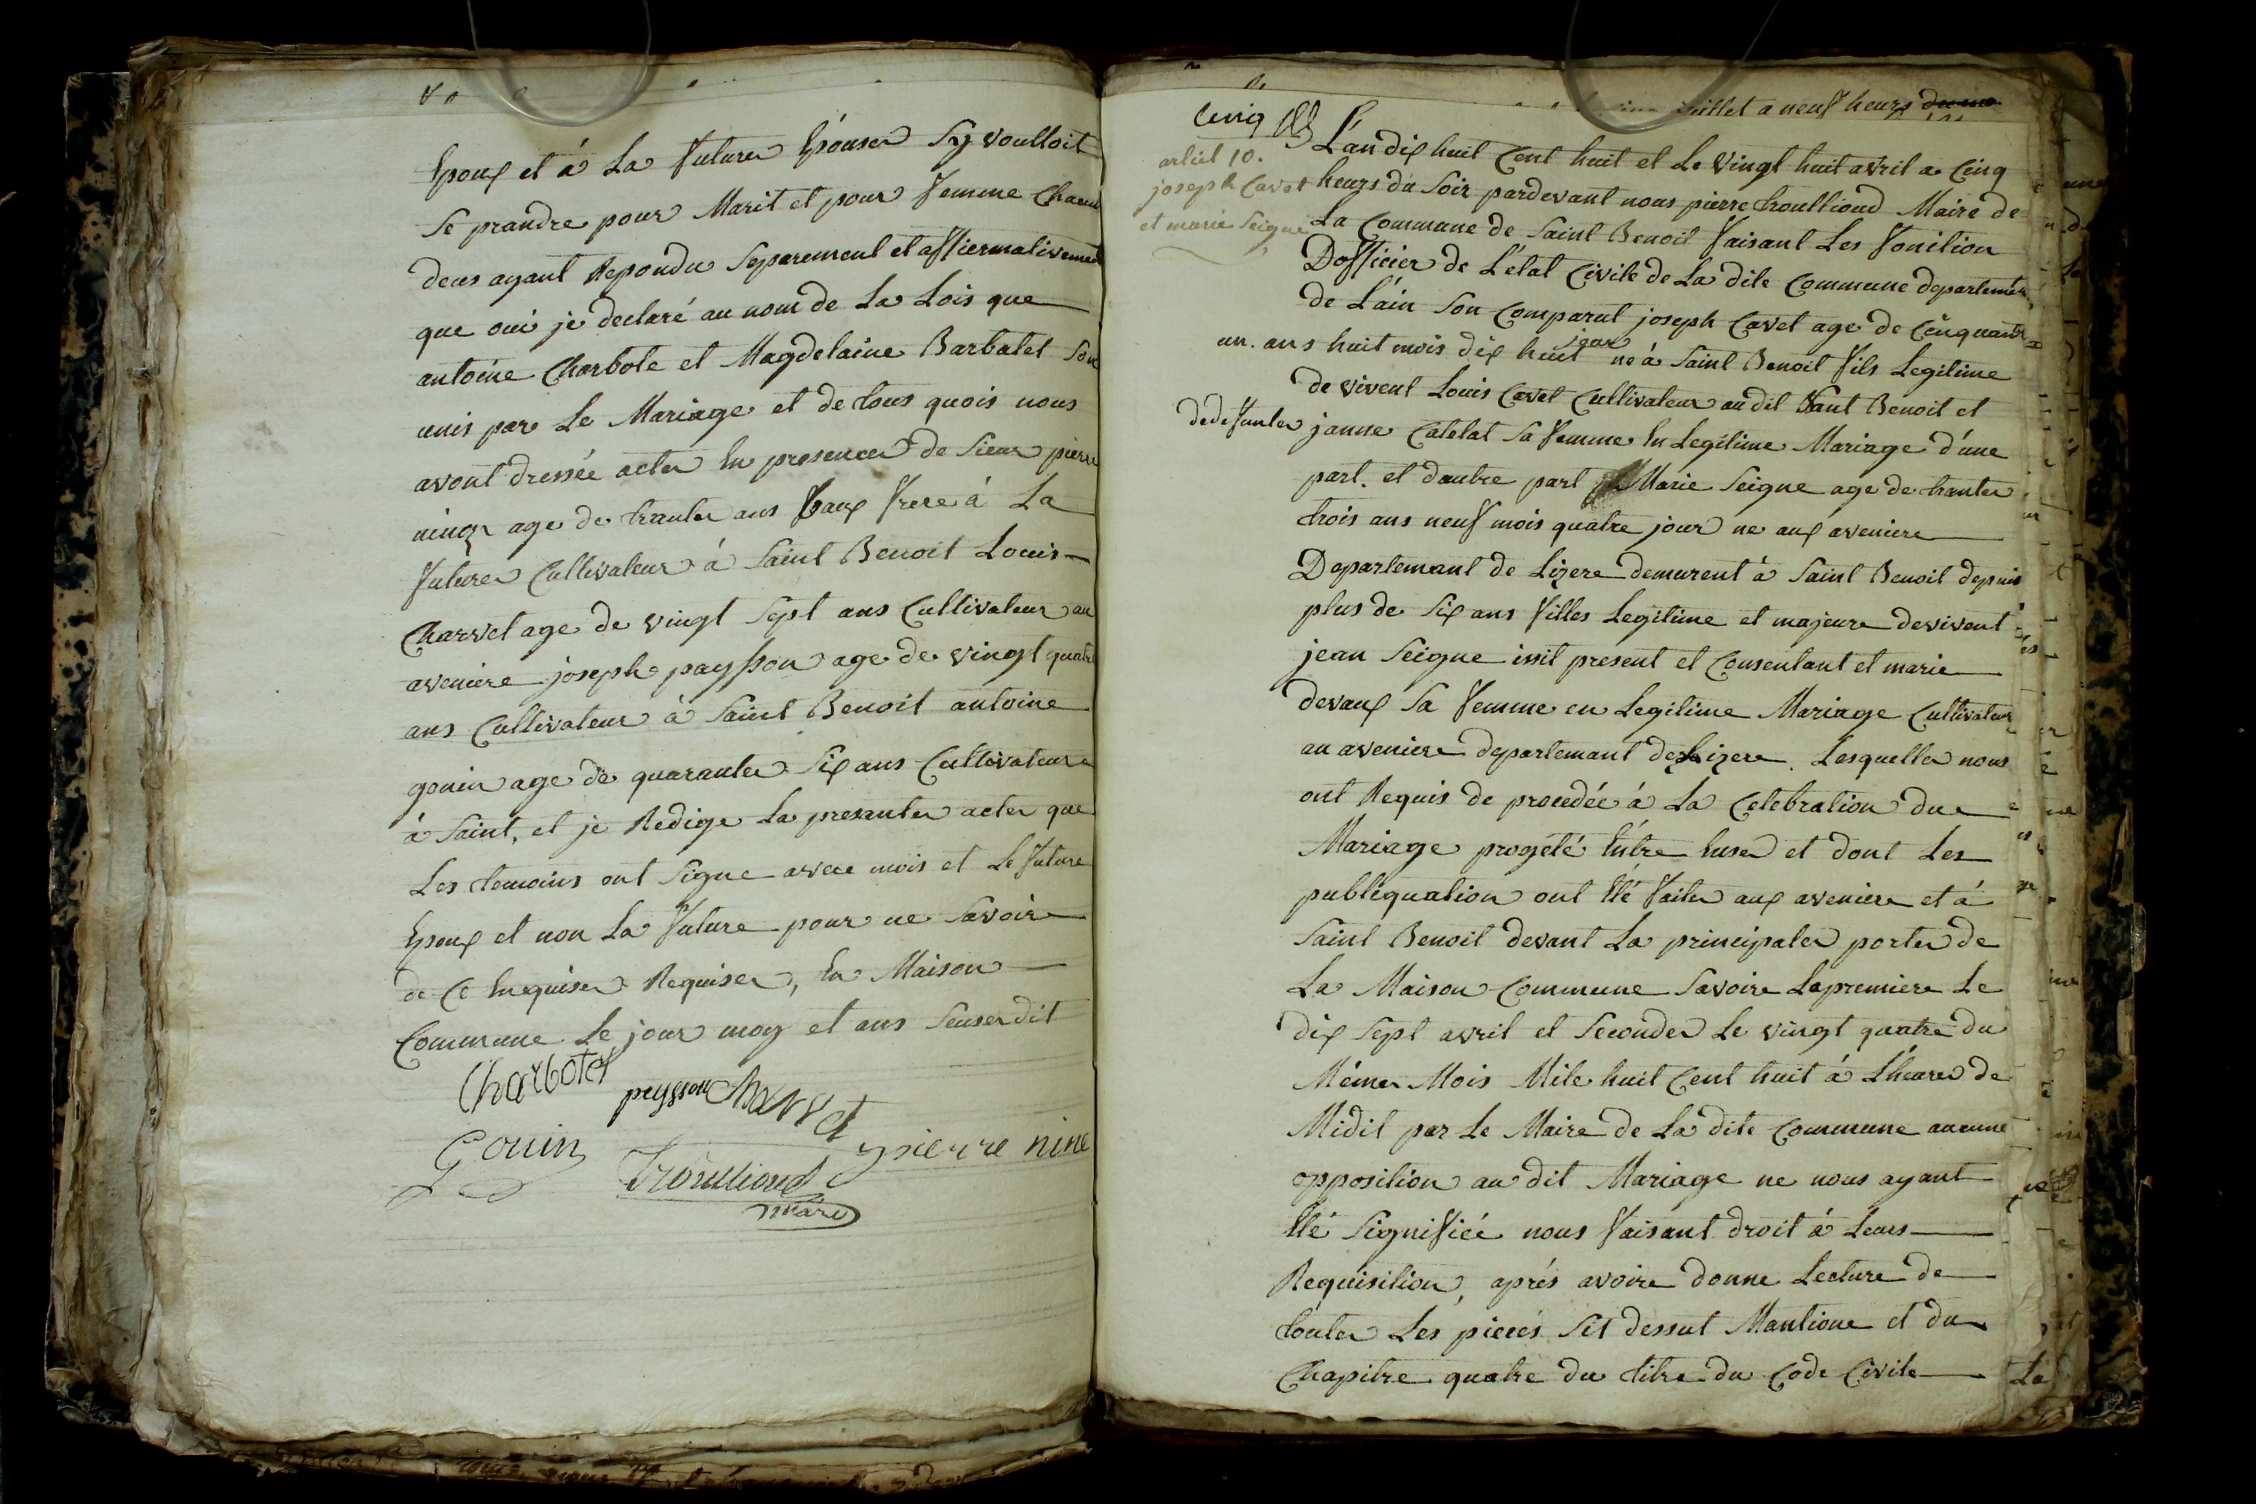 Epoux et á La Future Epouser Sy voulloit
Se prandre pour Marit et pour Femme Chacun
deus ayant Repondu Separement et affiermativement
que oui je declaré au nom de La Lois que
antoine Charbote et Magdelaine Barbatet Son
unis par Le Mariage et de tous quois nous
avont dressée acter En presencer de Sieur pierre
ninez age de tranter ans Baux Frere á La
Futurer Cultivateur á Saint Benoit Louis
Charvet age de vingt Sept ans Cultivateur au
aveniere joseph paysson age de vingt quatre
ans Cultivateur á Saint Benoit antoine
gouin age de quaranter Six ans Cultivateur
á Saint, et je Redige La presanter acter que
Les temoins ont Signe avece mois et Le Future
Epoux et non La Future pour ne Savoir
de Ce Enquiser Requiser, En Maison
Commune Le jour moy et ans Senserdit
Charbotet peysson Charvet
Gouin Troullioud pierre nine
mare
juillet a neuf heurs du
Cenq
L'an dix huit Cent huit et Le vingt huit avril a Cinq
articl 10.
joseph Cavet
et marie Seigne
heurs du Soir pardevant nous pierre troullioud Maire de
La Commune de Saint Benoit Faisant Les Fonition
Dofficier de L'état Civile de La dite Commune departement
de L'ain Son Comparut joseph Cavet age de Cinquante
un. ans huit mois dix huit jour ne á Saint Benoit Fils Legitime
de vivent Louis Cavet Cultivateur au dit Saint Benoit et
de defunter janne Catelat Sa Femme En Legitime Mariage d'une
part. et dautre part Marie Seigne age de tranter
trois ans neuf mois quatre jour ne aux aveniere
Departemant de Lizere demurent á Saint Benoit depuis
plus de Six ans Filles Legitime et majeure devivent
jean Seigne issit present et Consentant et marie
devaux Sa Femme en Legitime Mariage Cultivateur
au aveniere departemant de Lizere. Lesqueller nous
ont Requis de procedée á La Celebration du
Mariage progété Entre Euser et dont Les
publiquation ont Eté Faiter aux aveniere et á
Saint Benoit devant La principaler porter de
La Maison Commune Savoire La premiere Le
dix Sept avril et Seconder Le vingt quatre du
Mémer Mois Mile huit Cent huit á L'heurer de
Midit par Le Maire de La dite Commune aucune
opposition au dit Mariage ne nous ayant
Eté Signifiée nous Faisant droit á Leurs
Requisition, aprés avoire donne Lecture de
touter Les pieces Sit dessut Mantione et du
Chapitre quatre du titre du Code Civile
La